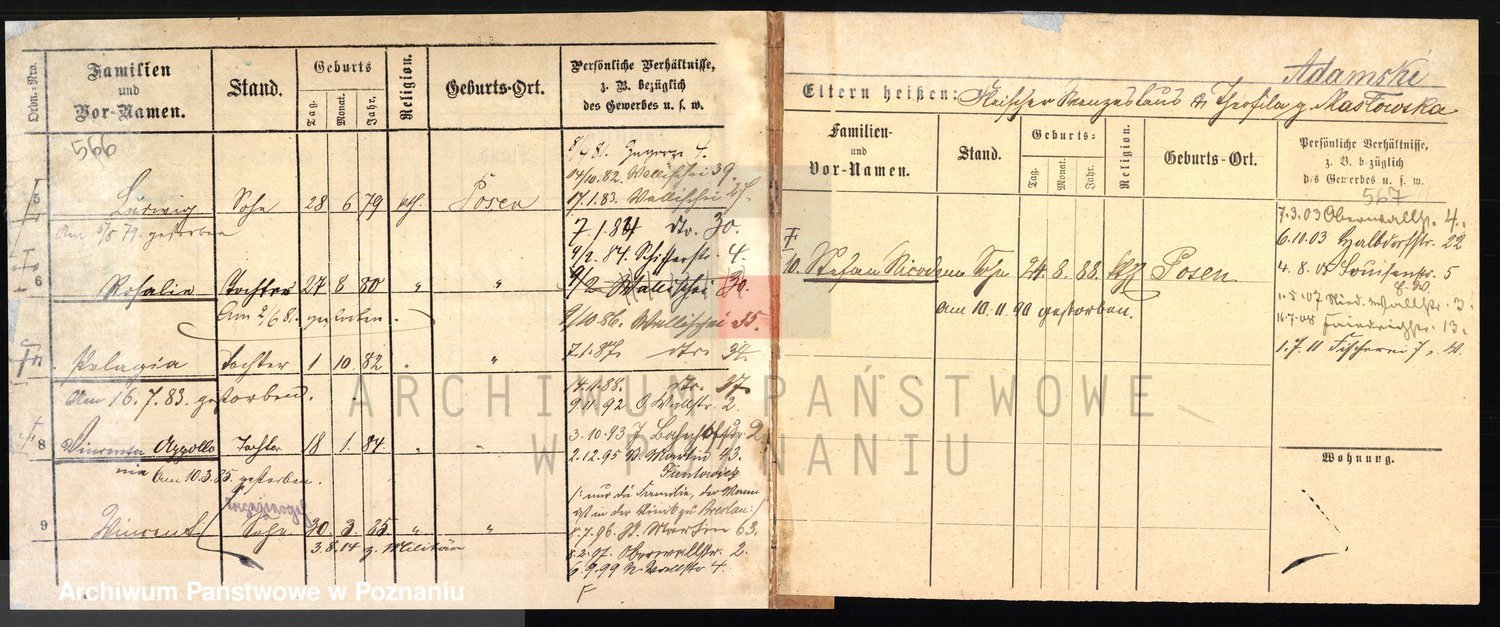 Ordn.-Nro.
Familien
und
Vor-Namen.
Stand.
Geburts
Tag.
Monat.
Jahr.
Religion.
Geburts-Ort.
Persönliche Verhältnisse,
z. B. bezüglich
des Gewerbes u. s. w.
566
5/4 81. Zagorze 4.
14/10.82. Wallischei 39.
5 Ludwig Sohn 28 6 79 kth. Posen
17.1.83. Wallischei
Am 5/8 79. gestorben
7.1.84 dto. 30.
9/2. 84. Schifferstr. 4.
6 Rosalie Tochter 27 8 80 " "
9/2 Wallischei 30.
Am gestorben.
1/10.86. Wallischei 55.
7.1.87. dto. 34.
7 Pelagia Tochter 1 10 82 " "
14.1.88. dto. 37
Am 16.7.83. gestorben.
9.11.92 O Wallstr. 2.
3.10.93 Bahnhofstr. 2
8 Vincenta Appollo Tochter 18 1. 84. " "
2.12.95 St. Martin 43.
nia Am 10.3.85. gestorben.
/: nur die Familie, der Mann
ist in der Klinik zu Breslau :/
9 Vincent Sohn 30 3 85 " "
8.7.96. St. Martin 63.
3.8.14 z. Militär
8.2.97. Oberwallstr. 2.
6.9.99 N. Wallstr 4.
Archiwum Państwowe w Poznaniu
Adamski
Eltern heißen: Fleischer Wenzeslaus & Theofila g. Masłowska
Familien-
und
Vor-Namen.
Stand.
Geburts-
Tag.
Monat.
Jahr.
Religion.
Geburts-Ort.
Persönliche Verhältnisse,
z. B. bezüglich
des Gewerbes u. s. w.
567
7.3.03 Oberwallstr. 4.
6.10.03 Halbdorfstr. 22
10. Stefan Nicodem Sohn 24. 8. 88. kth Posen
4.8.05 Louisenstr. 5
am 10.11.90 gestorben.
1.5.07 Nied. Wallstr. 3
16.7.08 Friedrichstr. 13.
1.7.11 Fischerei 7
Wohnung.
ARCHIWUM PAŃSTWOWE
W POZNANIU